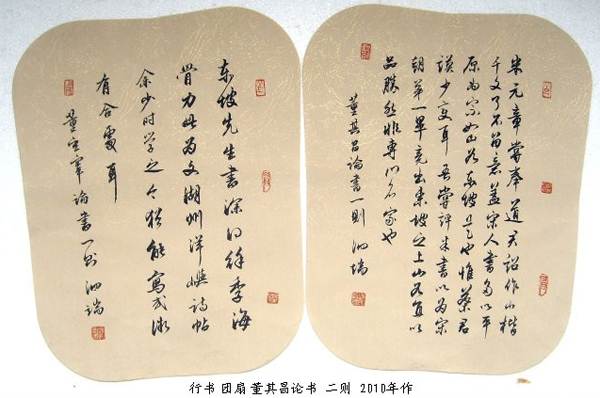 米元章尝奉道君诏作小楷
千文了不留意盖宋人书多以平
原为宗如山谷东坡是也惟蔡君
谟少变耳吾尝评米书以为宋
朝第一毕竟出东坡之上山谷直以
品胜然非专门名家也
董其昌论书一则 泗瑞
东坡先生书深得徐季海
骨力此为文湖州洋嶼诗帖
余少时学之今犹能写或微
有合处耳
董玄宰论书一则 泗瑞
行书 团扇 董其昌论书 二则 2010年作